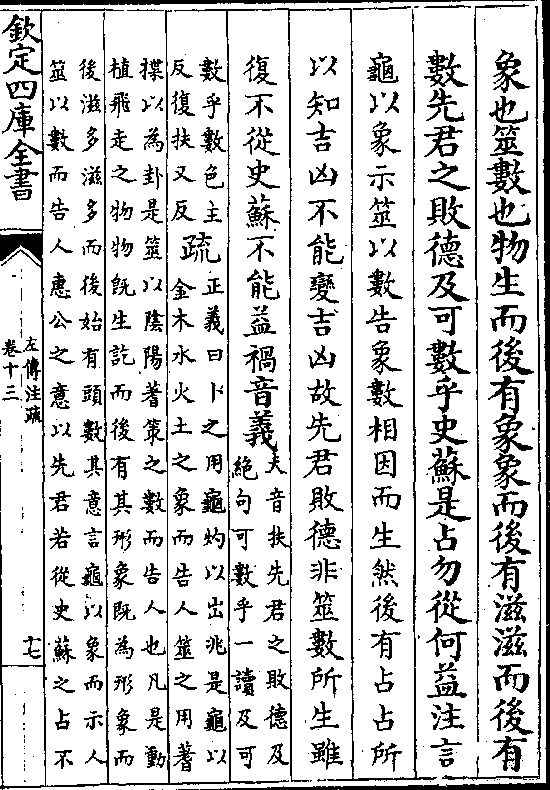 象也筮數也物生而後有象象而後有滋滋而後有
數先君之敗德及可數乎史蘇是占勿從何益注言
龜以象示筮以數告象數相因而生然後有占占所
以知吉凶不能變吉凶故先君敗德非筮數所生雖
復不從史蘇不能益禍音義夫音扶先君之敗德及
絕句可數乎一讀及可
數乎數色主
反復扶又反
疏正義曰卜之用龜灼以出兆是龜以
金木水火土之象而告人筮之用蓍
揲以為卦是筮以陰陽蓍策之數而告人也凡是動
植飛走之物物既生訖而後有其形象既為形象而
後滋多滋多而後始有頭數其意言龜以象而示人
筮以數而告人惠公之意以先君若從史蘇之占不
欽定四庫全書
左傳注疏
卷十三
十七